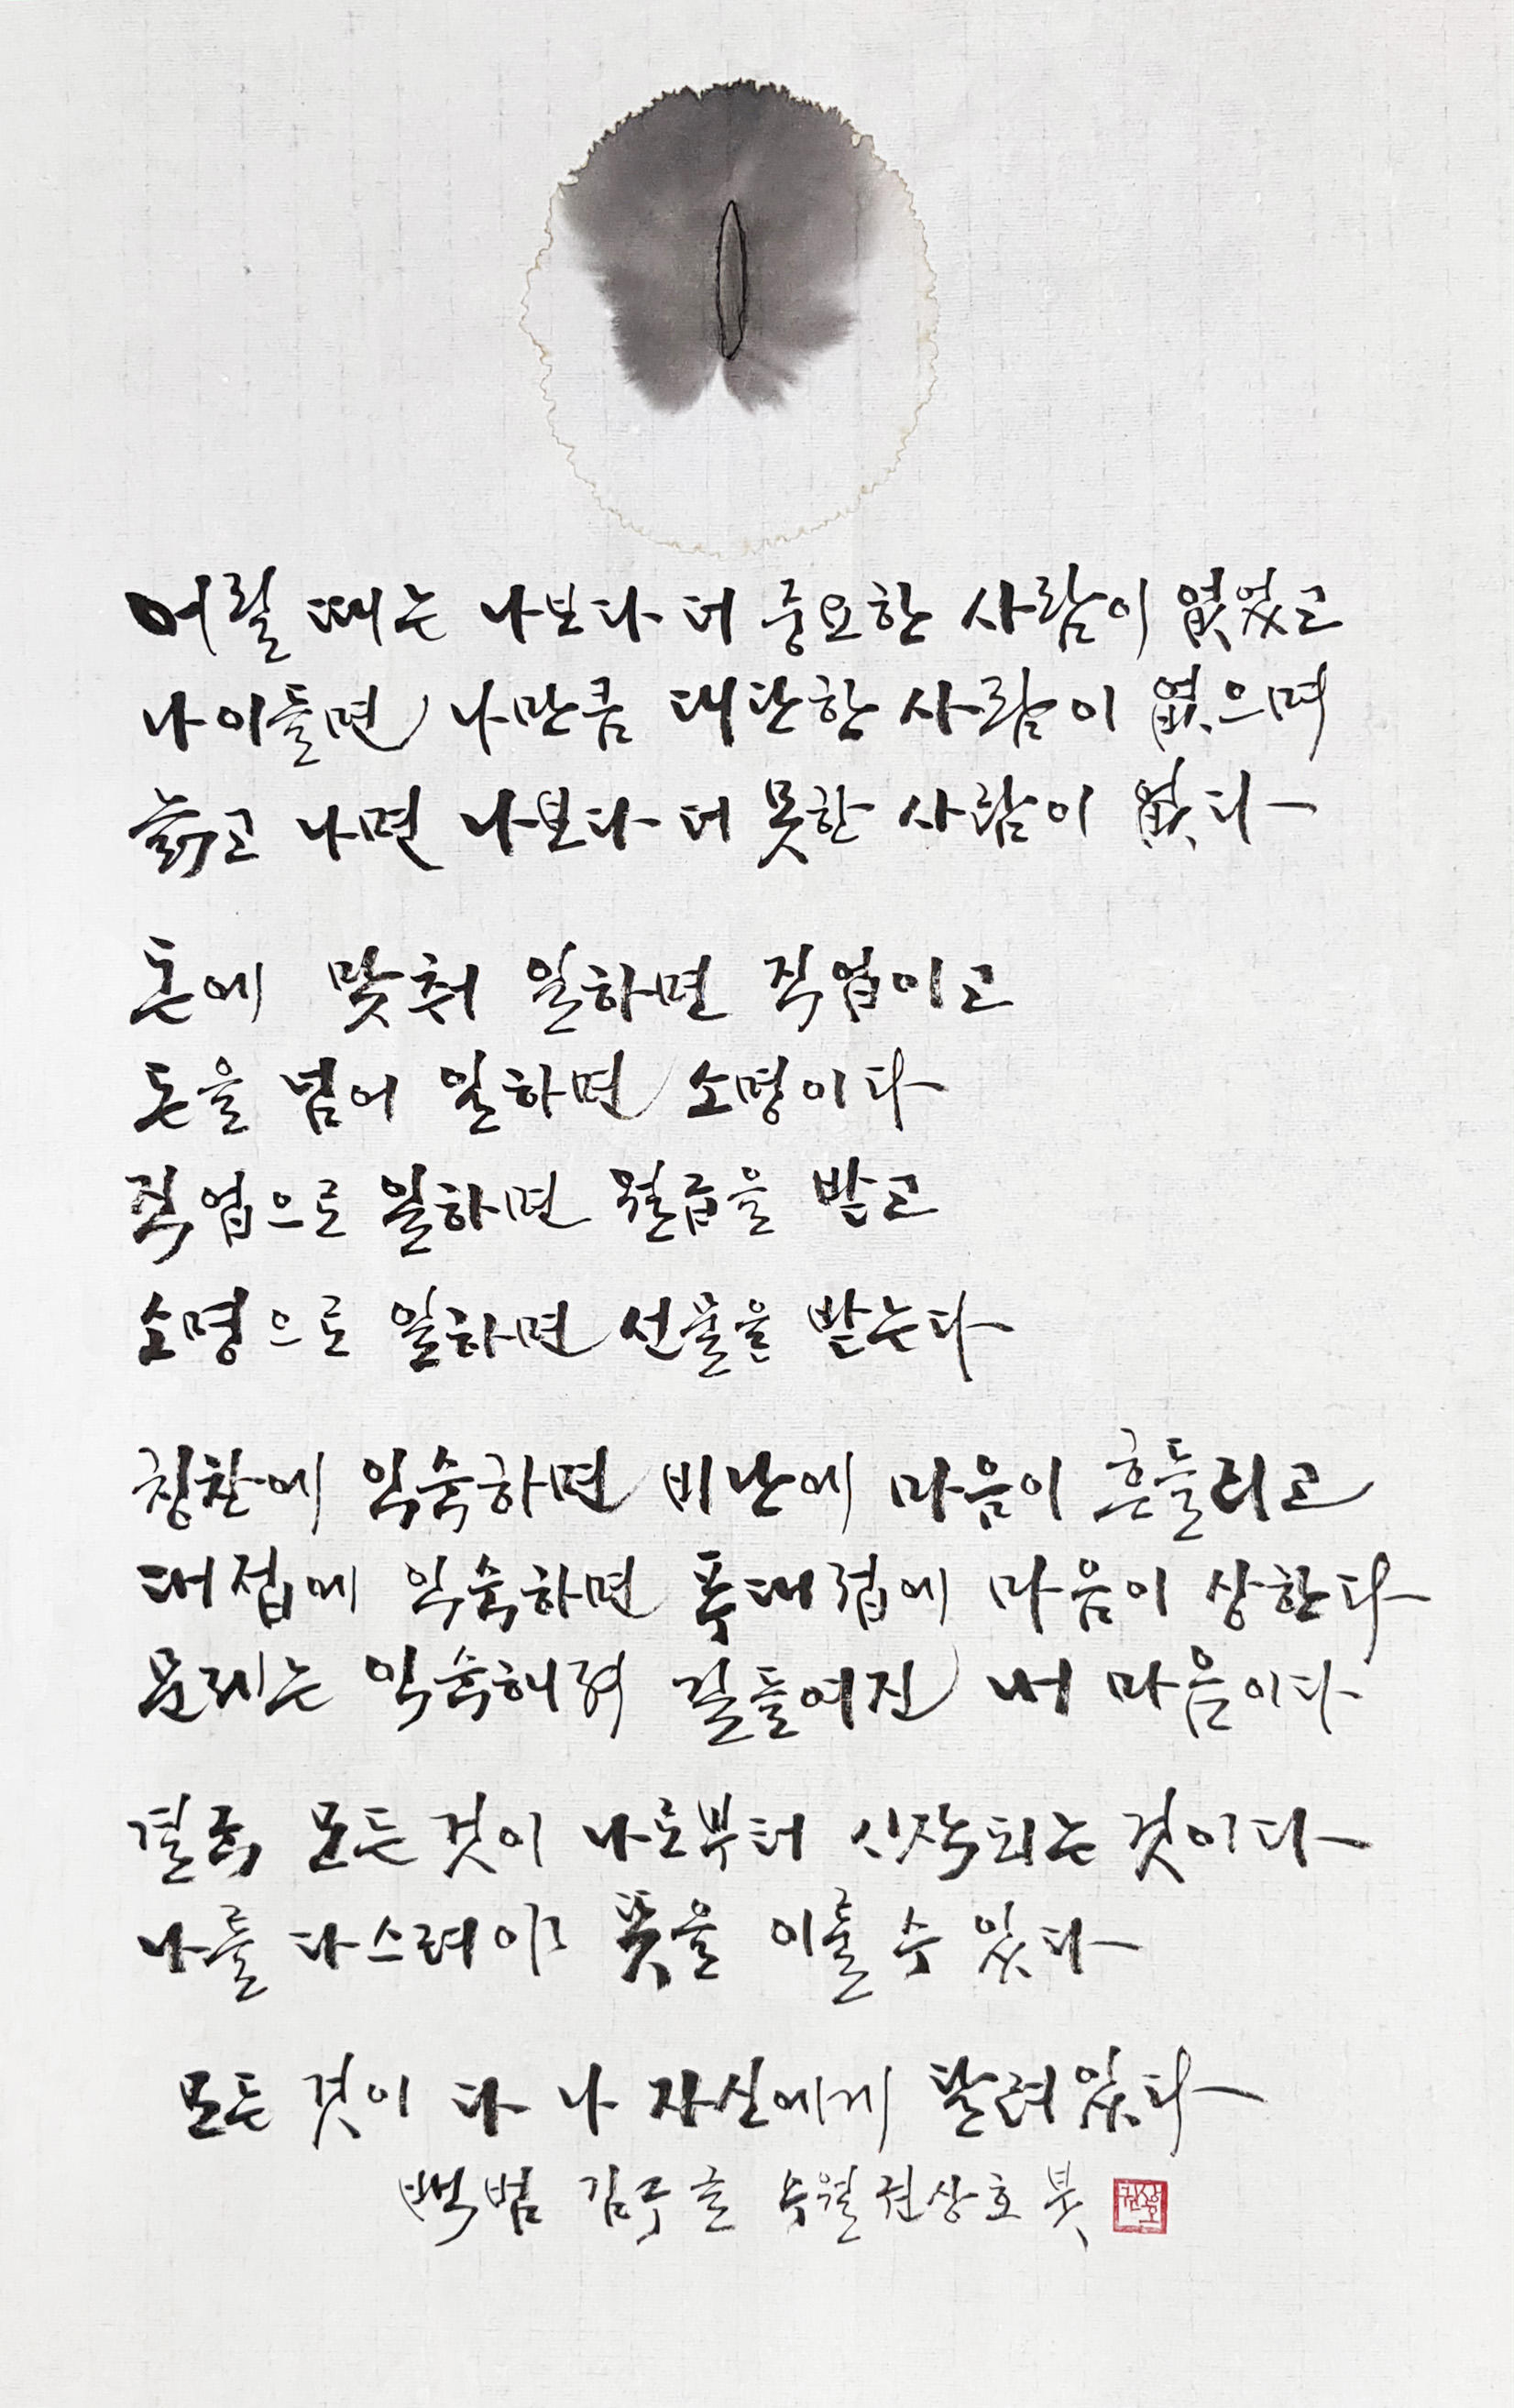 어릴 때는 나보다 더 중요한 사람이 없었고
나이들면 나만큼 대단한 사람이 없으며
늙고 나면 나보다 더 못한 사람이 없다
돈에 맞춰 일하면 직업이고
돈을 넘어 일하면 소명이다
직업으로 일하면 월급을 받고
소명으로 일하면 선물을 받는다
칭찬에 익숙하면 비난에 마음이 흔들리고
대접에 익숙하면 푸대접에 마음이 상한다
문제는 익숙해져 길들여진 내 마음이다
결국 모든 것이 나로부터 시작되는 것이다
나를 다스려야 뜻을 이룰 수 있다
모든 것이 다 나 자신에게 달려있다
백범 김구 글 수월 권상호 붓
권상호